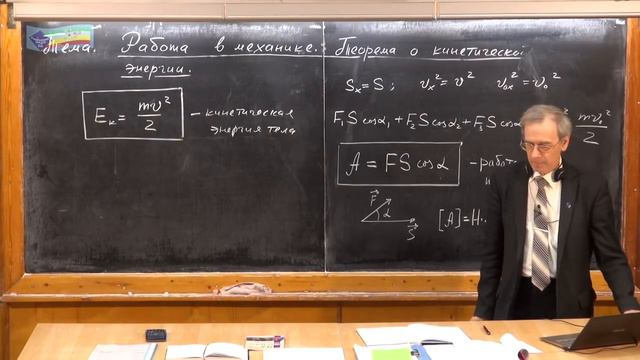 Тема. Работа в механике. Теорема о кинетической
энергии.
Eₖ = mv²/2 – кинетическая
энергия тела
Sₓ = S ; vₓ² = v² v₀ₓ² = v₀²
F₁S cosα₁ + F₂S cosα₂ + F₃S cosα mv₀²/2
A = FS cosα – работа
F⃗
α
S⃗
[A] = Н·